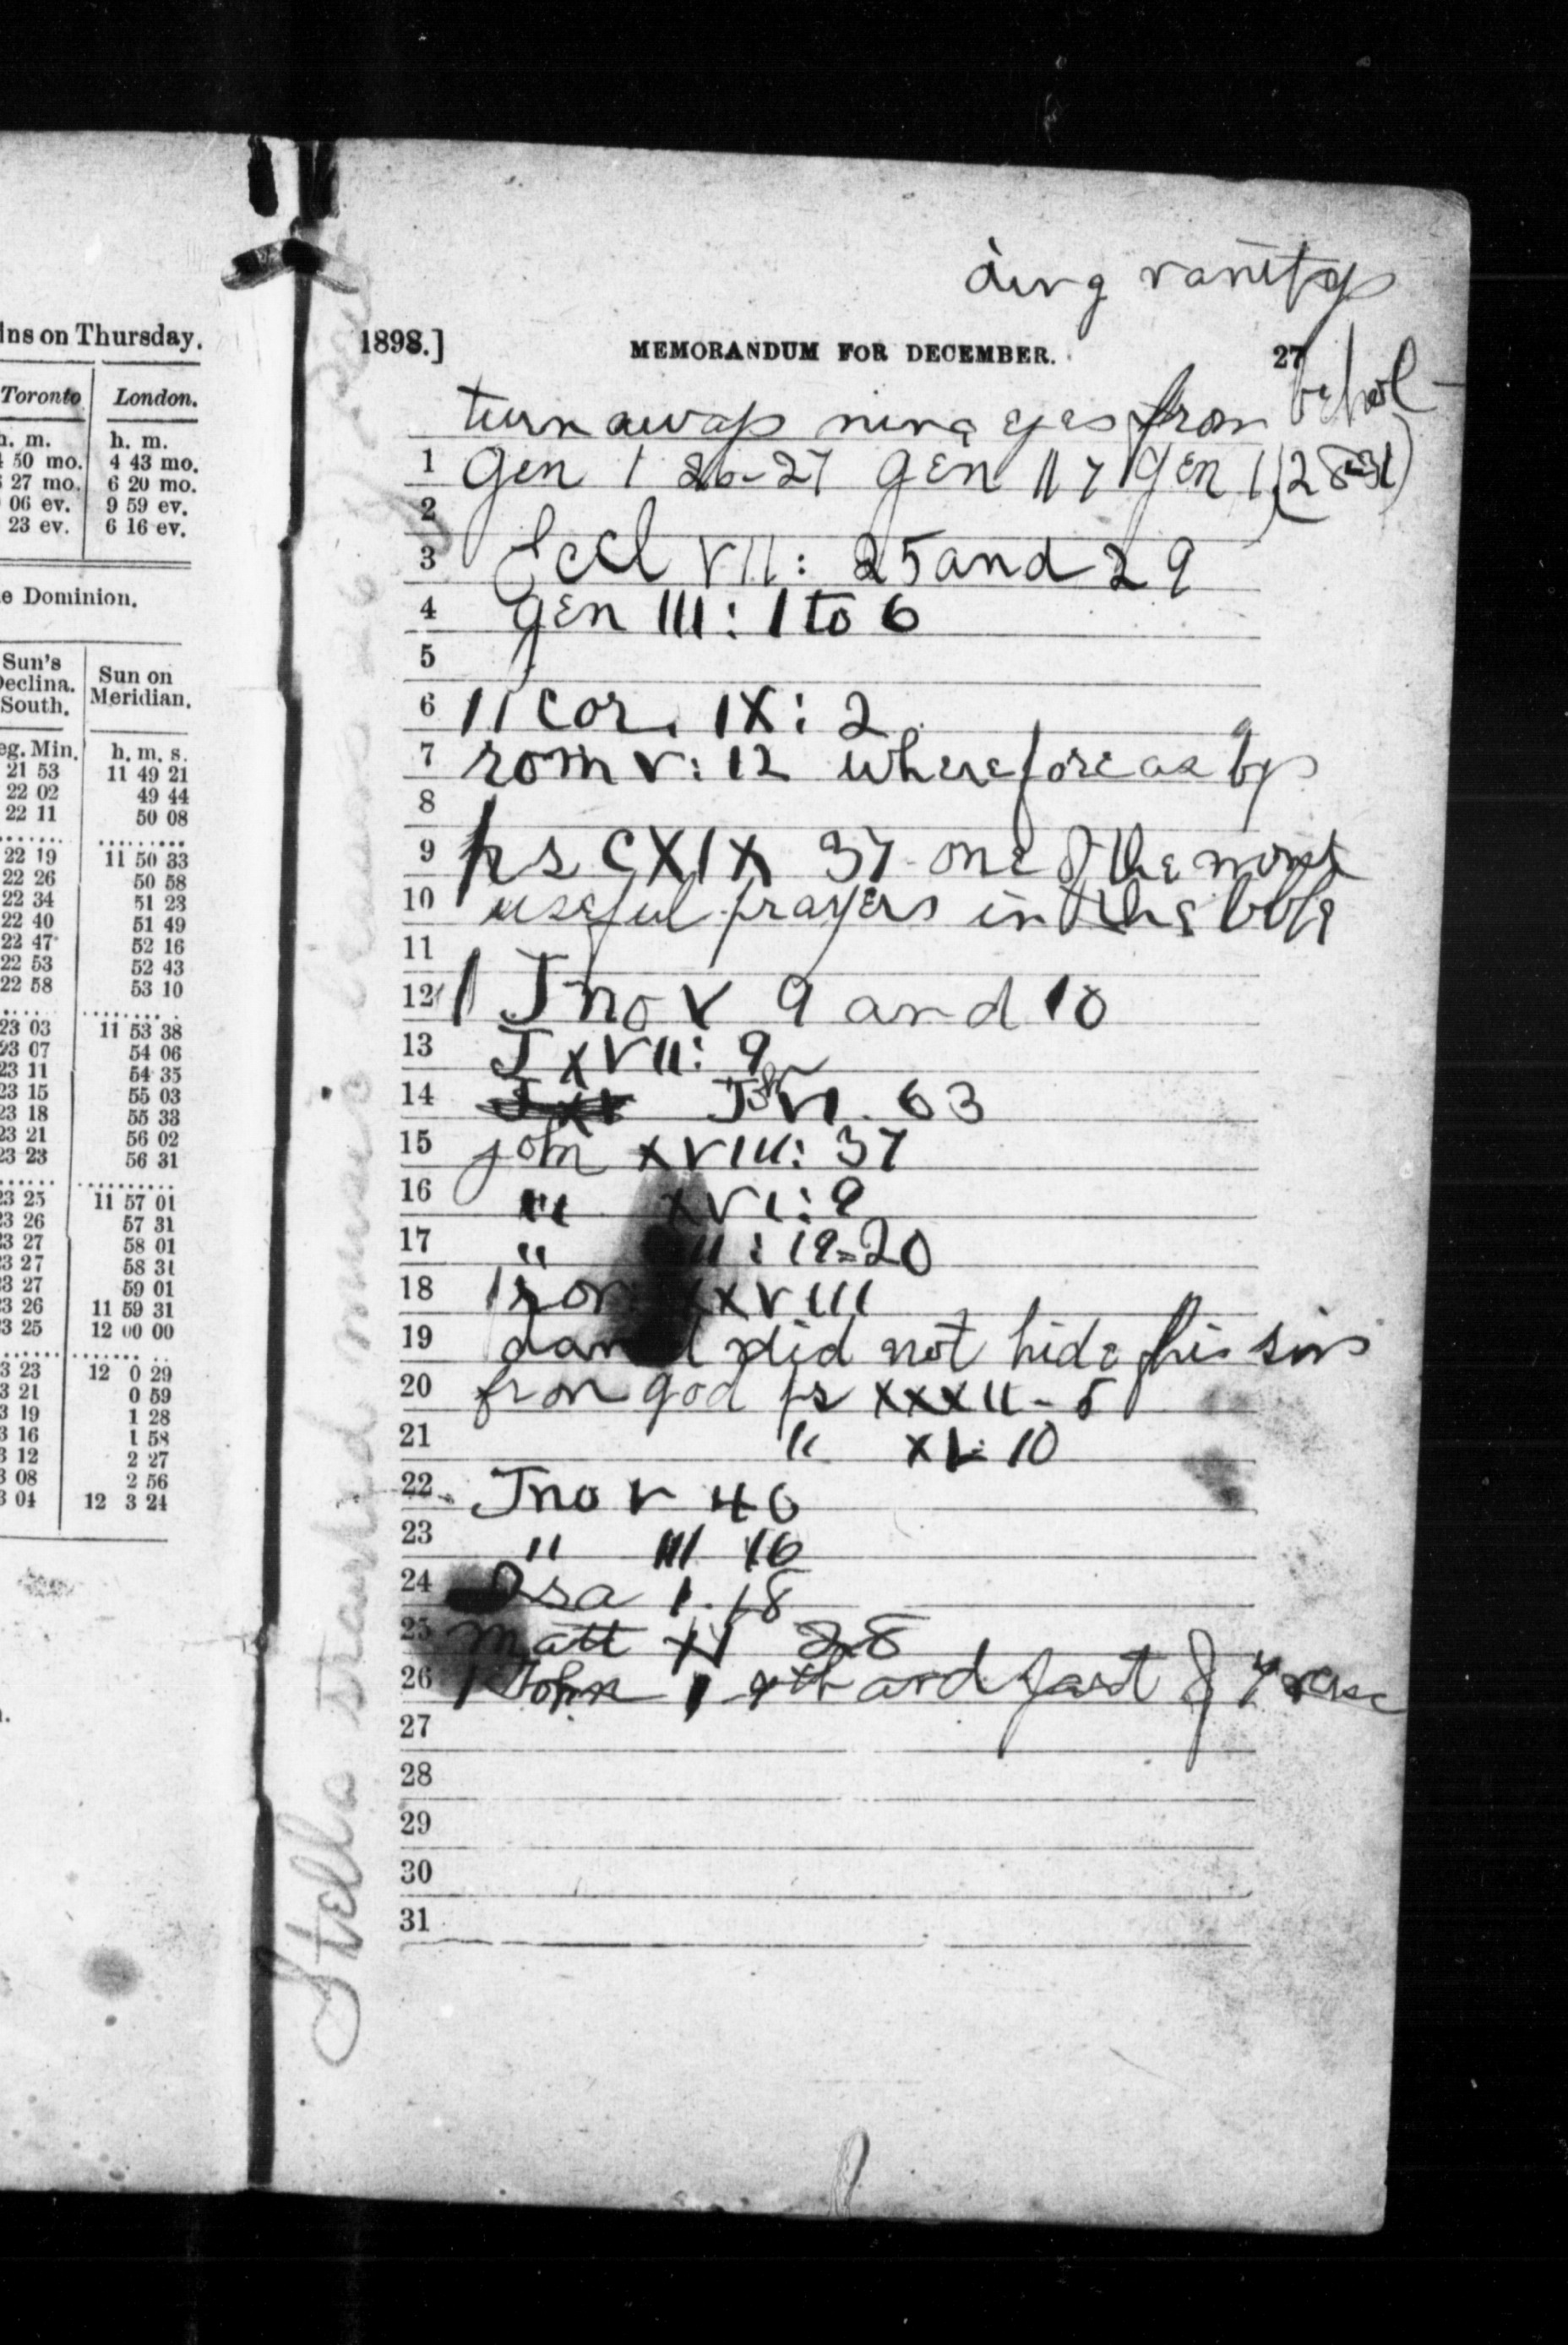 ins on Thursday.
Toronto London.
h. m. h. m.
50 mo. 4 43 mo.
27 mo. 6 20 mo.
06 ev. 9 59 ev.
23 ev. 6 16 ev.
e Dominion.
Sun's Declina. South. Sun on Meridian.
eg. Min. h. m. s.
21 53 11 49 21
22 02 49 44
22 11 50 08
22 19 11 50 33
22 26 50 58
22 34 51 23
22 40 51 49
22 47 52 16
22 53 52 43
22 58 53 10
23 03 11 53 38
23 07 54 06
23 11 54 35
23 15 55 03
23 18 55 33
23 21 56 02
23 23 56 31
23 25 11 57 01
3 26 57 31
3 27 58 01
3 27 58 31
3 27 59 01
3 26 11 59 31
3 25 12 00 00
3 23 12 0 29
3 21 0 59
3 19 1 28
3 16 1 58
3 12 2 27
3 08 2 56
3 04 12 3 24
Stella started music lessons 26
ding vanity
1898.] MEMORANDUM FOR DECEMBER. 27
turn away mine eyes from behol-
1 Gen 1 26-27 Gen II 7 Gen 1 (28-31)
2
3 Eccl VII: 25 and 29
4 Gen III: 1 to 6
5
6 11 Cor. IX: 2
7 rom V: 12 wherefore as by
8
9 ps CXIX 37 one of the most
10 useful prayers in the bble
11
12 1 Jno V 9 and 10
13 J XVII: 9
14 J VI. 63
15 john XVIII: 37
16 "" XVI: 9
17 " II: 19-20
18 XXVIII
19 did not hide his sins
20 from god ps XXXII-5
21 " XL: 10
22 Jno V 40
23 " III 16
24 Isa 1. 18
25 Matt XI 28
26 1 John 1 and part of 7 verse
27
28
29
30
31